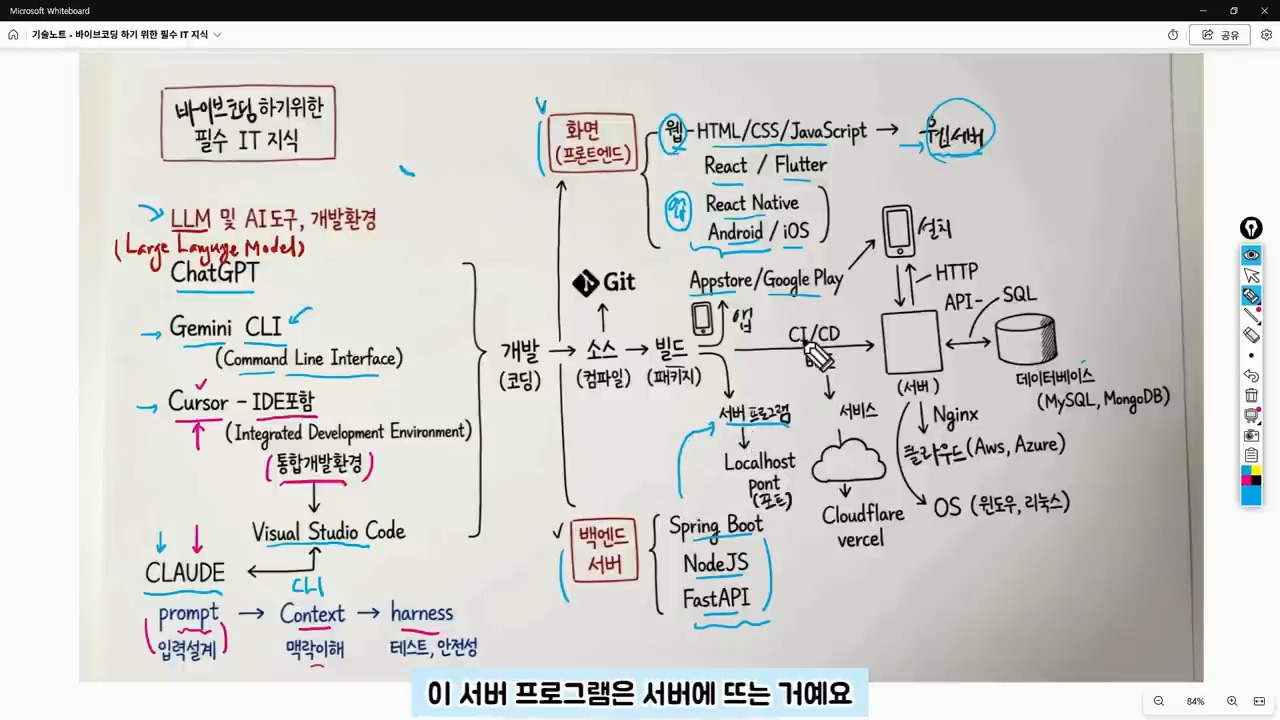 Microsoft Whiteboard
기술노트 - 바이브코딩 하기 위한 필수 IT 지식
공유
바이브코딩하기위한
필수 IT 지식
LLM 및 AI도구, 개발환경
(Large Languge Model)
ChatGPT
Gemini CLI
(Command Line Interface)
Cursor - IDE포함
(Integrated Development Environment)
(통합개발환경)
Visual Studio Code
CLAUDE
CLI
prompt → Context → harness
(입력설계)
맥락이해
테스트, 안전성
개발
(코딩)
Git
소스
(컴파일)
빌드
(패키지)
화면
(프론트엔드)
웹 - HTML/CSS/JavaScript → 웹서버
React / Flutter
앱
React Native
Android / iOS
Appstore/Google Play
설치
앱
HTTP
API-
SQL
CI/CD
(서버)
데이터베이스
(MySQL, MongoDB)
서버프로그램
Localhost
pont
(포트)
서비스
Cloudflare
vercel
Nginx
클라우드(Aws, Azure)
OS (윈도우, 리눅스)
백엔드
서버
Spring Boot
NodeJS
FastAPI
이 서버 프로그램은 서버에 뜨는 거예요
84%